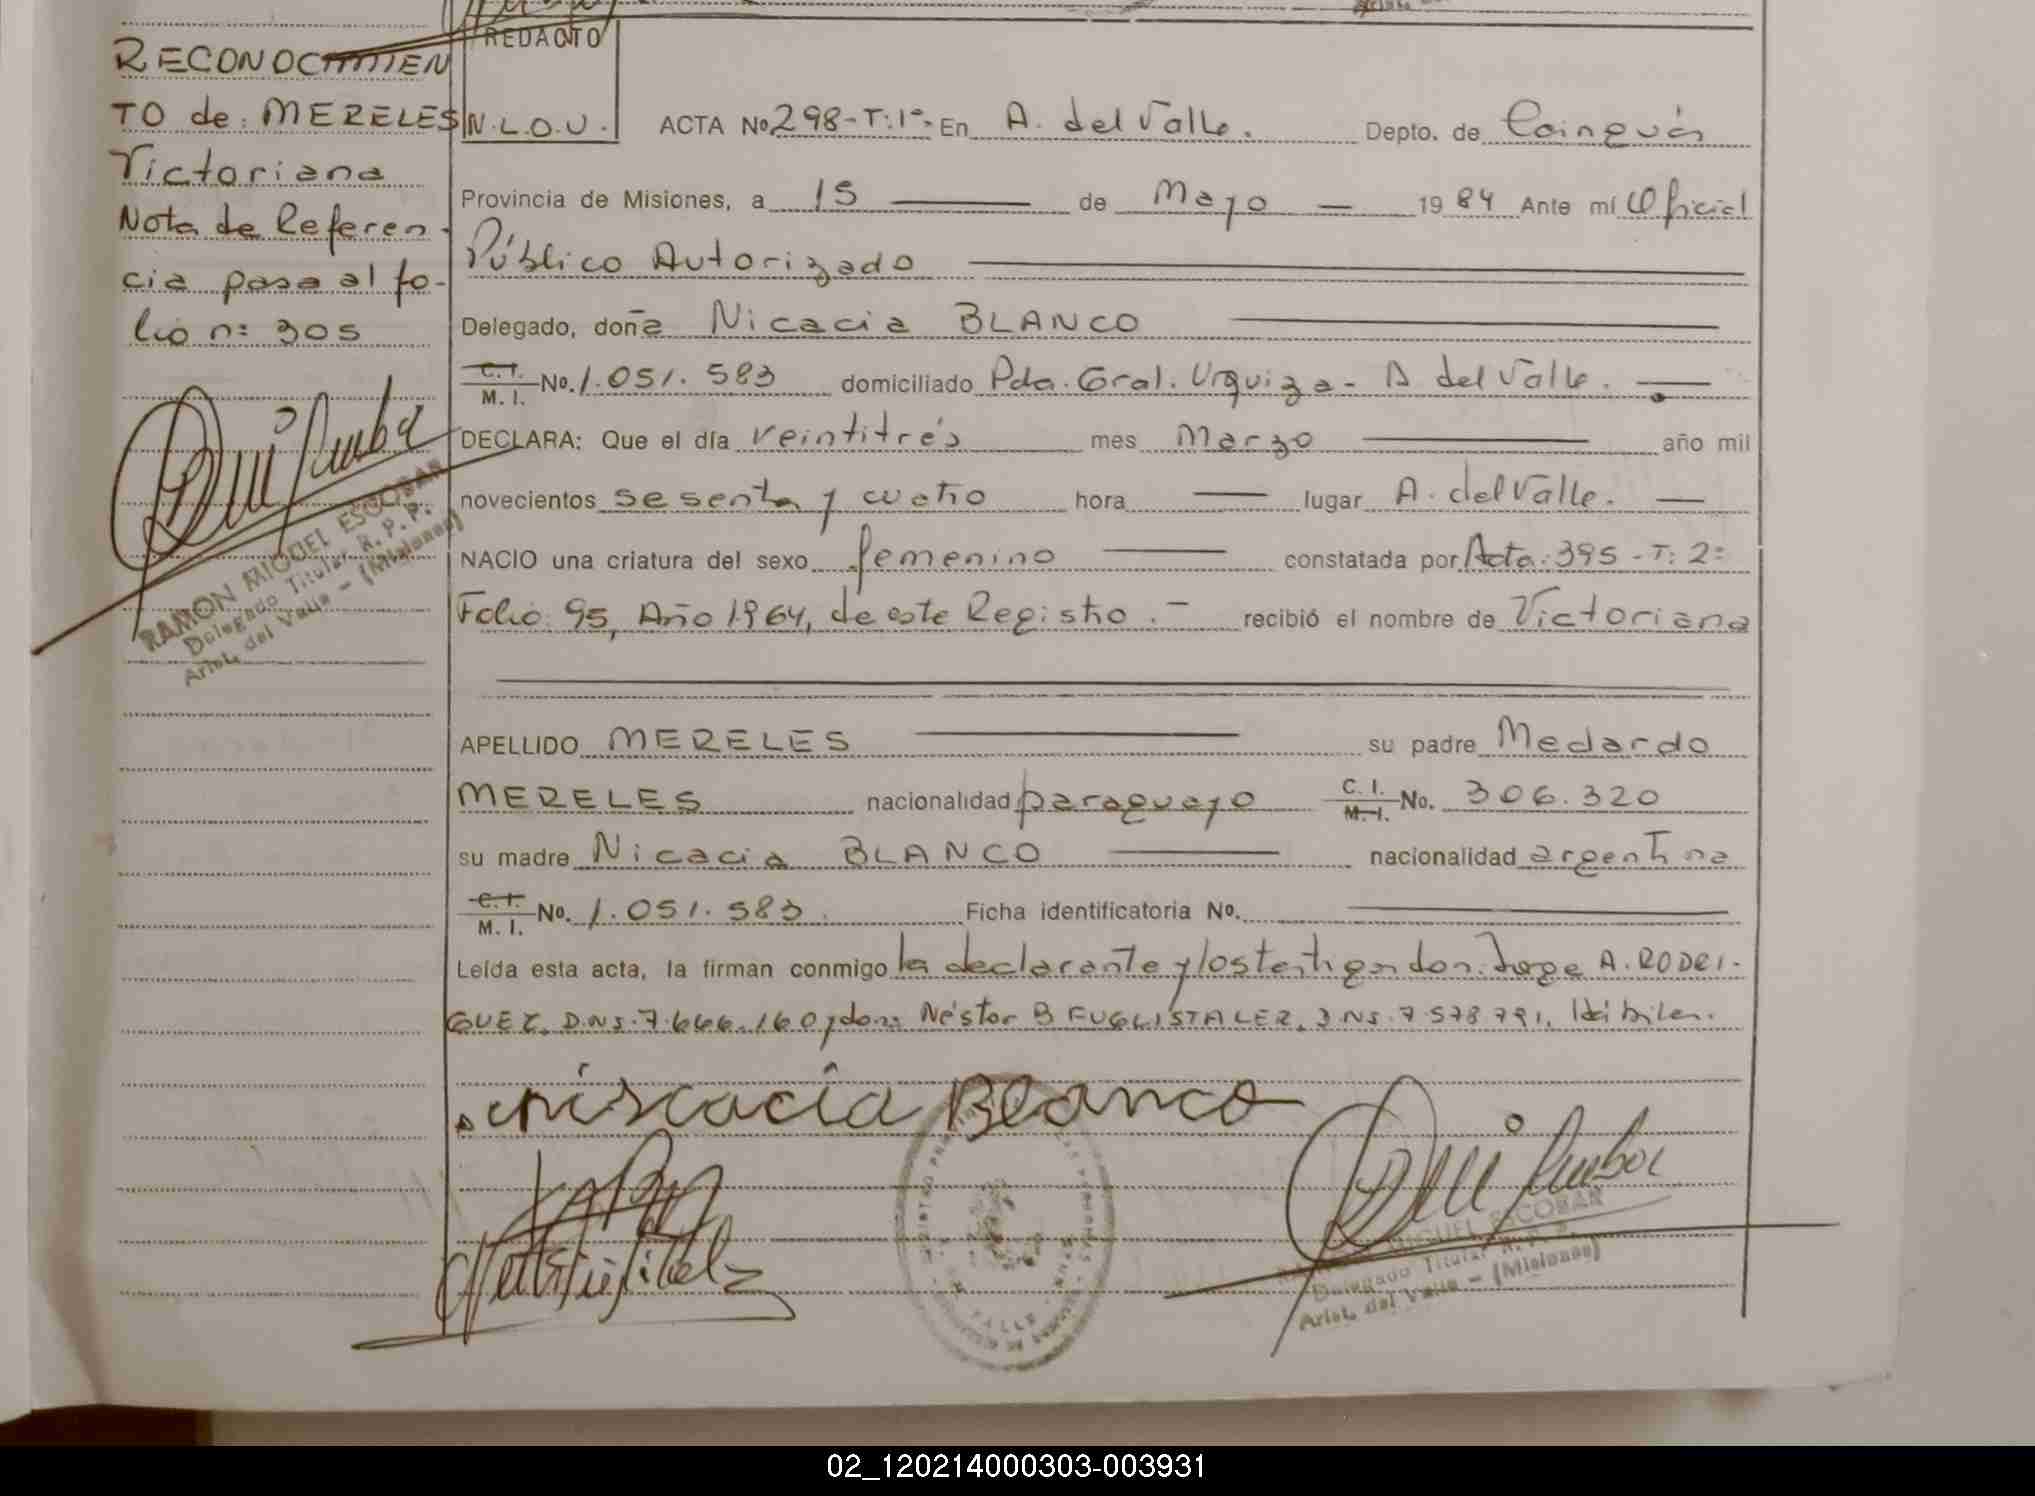 RECONOCIMIEN
TO de: MERELES
Victoriana
Nota de Referen-
cia pasa al fo-
lio nº 305
RAMON MIGUEL ESCOBAR
Delegado Titular R. P. P.
Arist. del Valle - (Misiones)
REDACTO
N.L.O.U.
ACTA No 298-T:1º- En A. del Valle. Depto. de Cainguás
Provincia de Misiones, a 15 de Mayo 1984 Ante mí Oficial
Público Autorizado
Delegado, doña Nicacia BLANCO
C.I. M. I. No. 1.051.583 domiciliado Pda. Gral. Urquiza - A. del Valle.
DECLARA: Que el día veintitrés mes Marzo año mil
novecientos sesenta y cuatro hora lugar A. del Valle.
NACIO una criatura del sexo femenino constatada por Acta: 395 - T: 2º
Folio: 95, Año 1964, de este Registro.- recibió el nombre de Victoriana
APELLIDO MERELES su padre Medardo
MERELES nacionalidad paraguayo C. I. M. I. No. 306.320
su madre Nicacia BLANCO nacionalidad argentina
C.I. M. I. No. 1.051.583. Ficha identificatoria No.
Leída esta acta, la firman conmigo la declarante y los testigos don: Jorge A. RODRI-
GUEZ, D.N.I. 7.666.160 y don: Néstor B FUGLISTALER, D.N.I. 7.578.791, Hábiles.
niscacia Blanco
MIGUEL ESCOBAR
Delegado Titular R. P. P.
Arist. del Valle - (Misiones)
02_120214000303-003931